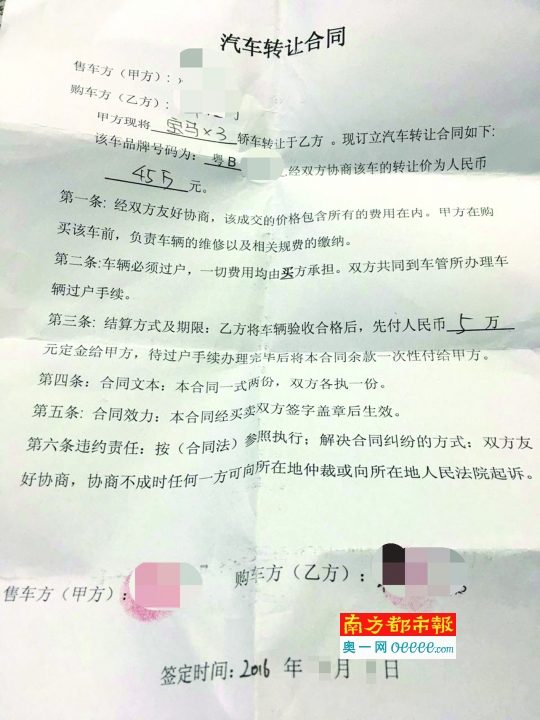 汽车转让合同
售车方（甲方）：
购车方（乙方）：
甲方现将 宝马x3 轿车转让于乙方。现订立汽车转让合同如下:
该车品牌号码为：粤B 经双方协商该车的转让价为人民币
45万 元。
第一条: 经双方友好协商，该成交的价格包含所有的费用在内。甲方在购
买该车前，负责车辆的维修以及相关规费的缴纳。
第二条:车辆必须过户，一切费用均由买方承担。双方共同到车管所办理车
辆过户手续。
第三条: 结算方式及期限：乙方将车辆验收合格后，先付人民币 5 万
元定金给甲方，待过户手续办理完毕后将本合同余款一次性付给甲方。
第四条：合同文本：本合同一式两份，双方各执一份。
第五条：合同效力：本合同经买卖双方签字盖章后生效。
第六条违约责任：按（合同法）参照执行；解决合同纠纷的方式：双方友
好协商，协商不成时任何一方可向所在地仲裁或向所在地人民法院起诉。
售车方（甲方）：
购车方（乙方）：
南方都市報
奥一网oeeee.com
签定时间:2016 年 月 日